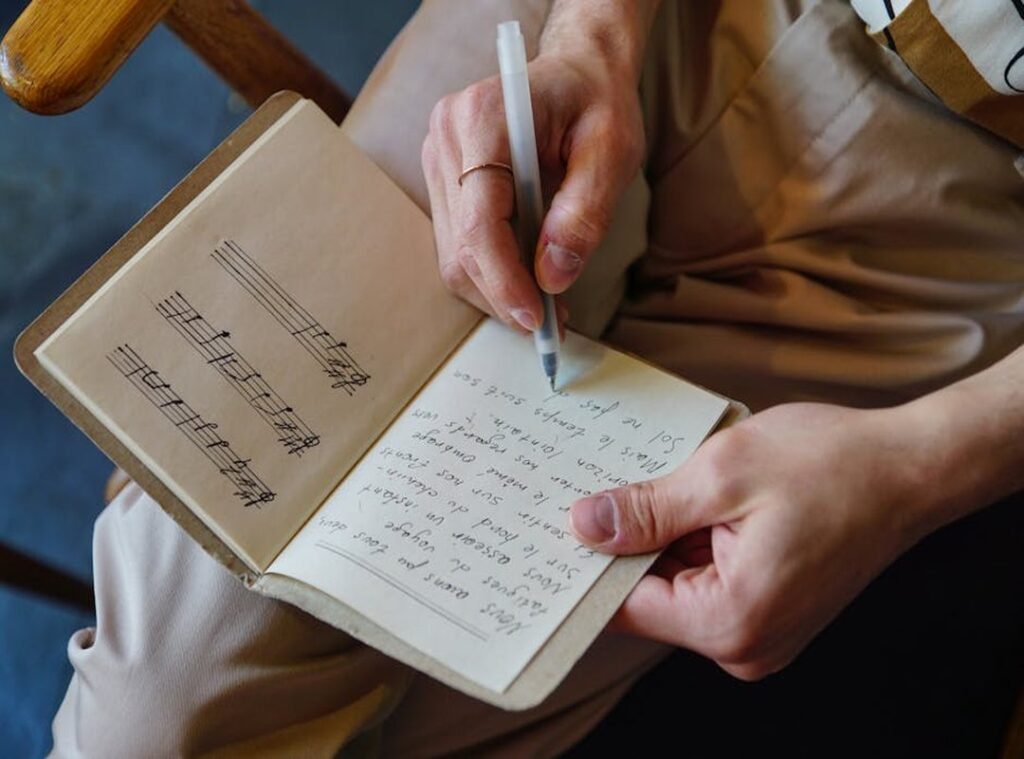 Nous avons pu tous deux
fatigues du voyage
Nous asseoir un instant
Sur le bord du chemin-
Et sentir sur nos fronts
le même ombrage
nos regards vers
lointain.
Mais le temps suit son
ne pas